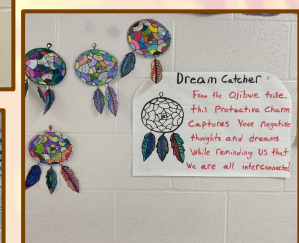 Dream Catcher
From the Ojibwe tribe,
this Protective Charm
Captures Your negative
thoughts and dreams
While reminding US that
We are all interconnected